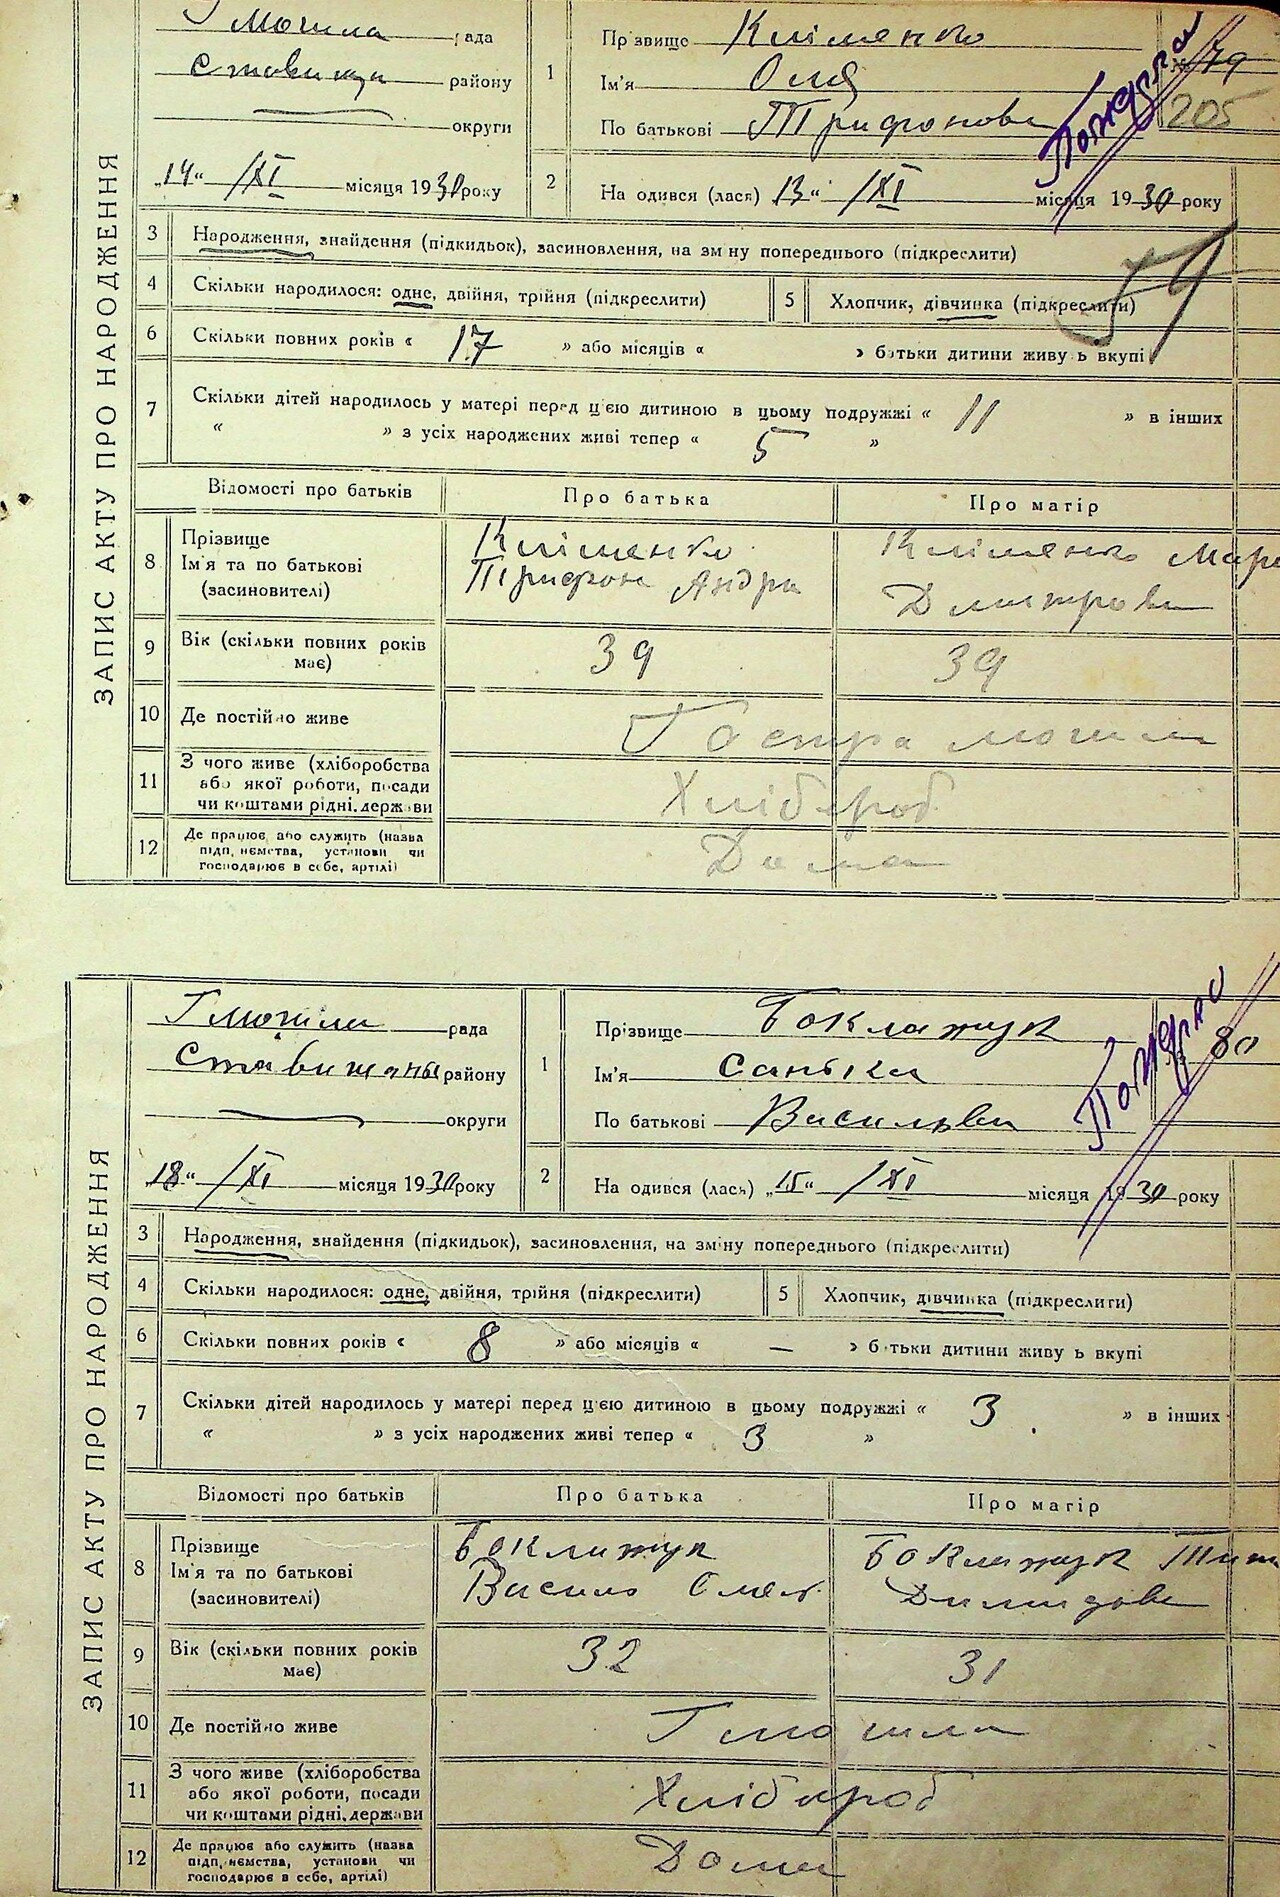 ЗАПИС АКТУ ПРО НАРОДЖЕННЯ
Гмогила рада
Ставищан району
округи
„14“ /XI місяця 1930 року
1
Прізвище Кліменко
Ім'я Оля
По батькові Трифонова
№ 79
205
2
На одився (лася) 13“ /XI місяця 1930 року
3 Народження, знайдення (підкидьок), засиновлення, на зміну попереднього (підкреслити)
4 Скільки народилося: одне, двійня, трійня (підкреслити)
5 Хлопчик, дівчинка (підкреслити)
6 Скільки повних років « 17 » або місяців « » батьки дитини живу ь вкупі
7 Скільки дітей народилось у матері перед цією дитиною в цьому подружжі « 11 » в інших
« » з усіх народжених живі тепер « 5 »
Відомості про батьків Про батька Про матір
8 Прізвище
Ім'я та по батькові
(засновителі)
Кліменко
Трифон Андри
Кліменко Мари
Дмитрова
9 Вік (скільки повних років
має)
39 39
10 Де постійно живе
Гостра могила
11 З чого живе (хліборобства
або якої роботи, посади
чи коштами рідні, держави
Хлібороб
12 Де працює або служить (назва
підприємства, установи чи
господарює в себе, артілі)
Дома
ЗАПИС АКТУ ПРО НАРОДЖЕННЯ
Гмогила рада
Ставищаны району
округи
18“ /XI місяця 1930 року
1
Прізвище Боклажук
Ім'я Санька
По батькові Васильвн
80
2
На одився (лася) „15“ /XI місяця 1930 року
3 Народження, знайдення (підкидьок), засиновлення, на зміну попереднього (підкреслити)
4 Скільки народилося: одне, двійня, трійня (підкреслити)
5 Хлопчик, дівчинка (підкреслити)
6 Скільки повних років « 8 » або місяців « — » батьки дитини живу ь вкупі
7 Скільки дітей народилось у матері перед цією дитиною в цьому подружжі « 3 » в інших
« » з усіх народжених живі тепер « 3 »
Відомості про батьків Про батька Про матір
8 Прізвище
Ім'я та по батькові
(засиновителі)
Боклажук
Василь
Боклажук
Демидова
9 Вік (скільки повних років
має)
32 31
10 Де постійно живе
Гмогила
11 З чого живе (хліборобства
або якої роботи, посади
чи коштами рідні, держави
Хлібороб
12 Де працює або служить (назва
підприємства, установи чи
господарює в себе, артілі)
Дома